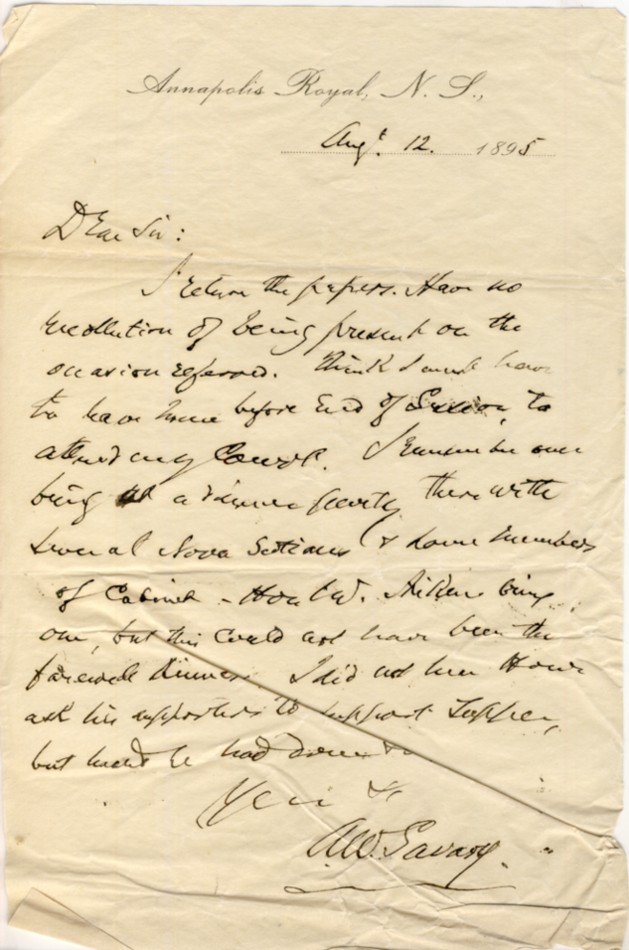 Annapolis Royal, N. S.,
Augt. 12. 1895
Dear Sir:
I return the papers. Have no
recollection of being present on the
occasion referred. Think I must have
to have home before end of Session, to
attend my Court. I remember our
being at a dinner party there with
several Nova Scotians & some members
of Cabinet - Hon W. Aikins being
one, but this could not have been the
farewell dinner. I did not hear Howe
ask his supporters to support Tupper,
but heard he had done so
Yours &c
A.W. Savary.